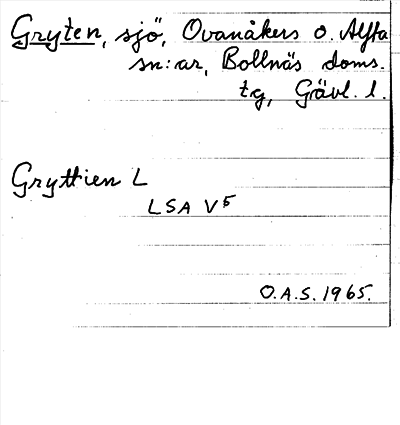 Gryten, sjö, Ovanåkers o. Alfta
sn:ar, Bollnäs doms.
tg, Gävl. l.
Gryttien L
LSA V5
O.A.S. 1965.